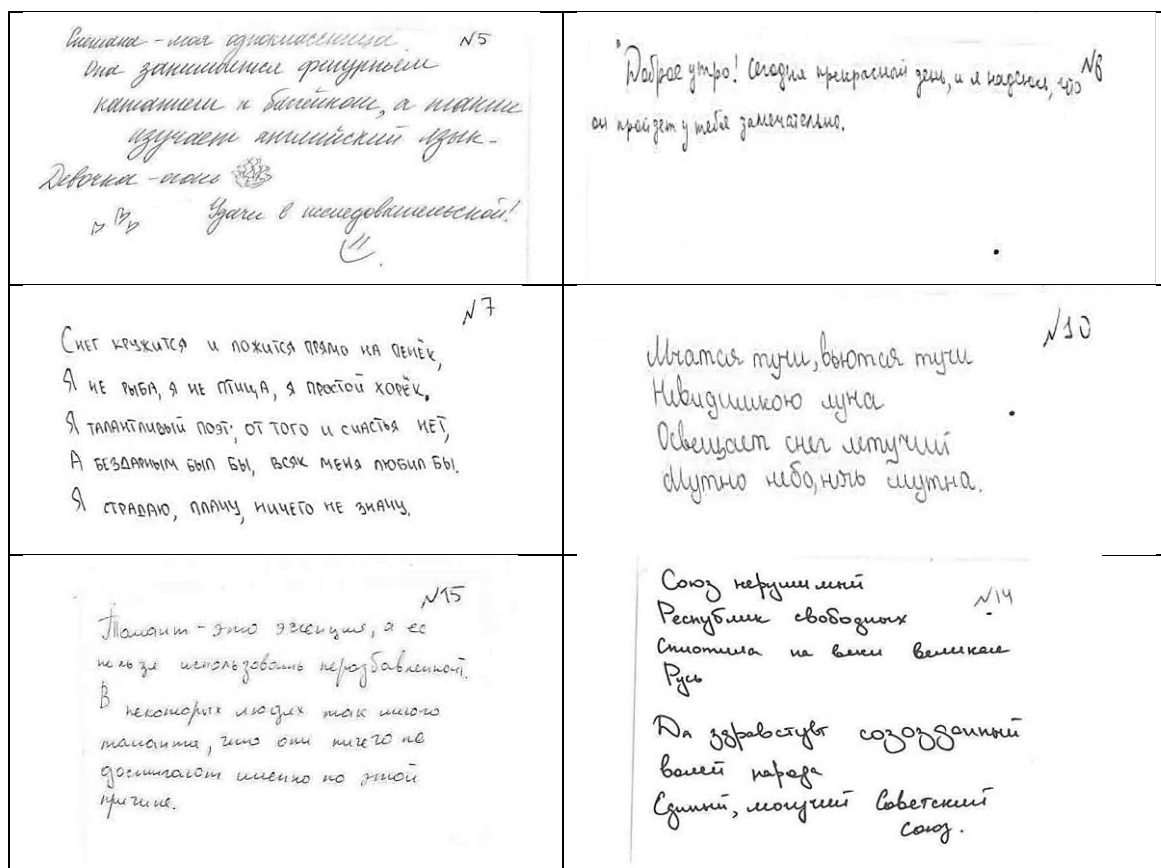 №5
Снежана - моя одноклассница.
Она занимается фигурным
катанием и басейном, а также
изучает английский язык.
Девочка - огонь
Удачи в исследовательской!
№6
"Доброе утро! Сегодня прекрасный день, и я надеюсь, что
он пройдет у тебя замечательно.
№7
Снег кружится и ложится прямо на пенёк,
Я не рыба, я не птица, я простой хорёк.
Я талантливый поэт, от того и счастья нет,
А бездарным был бы, всяк меня любил бы.
Я страдаю, плачу, ничего не значу.
№10
Мчатся тучи, вьются тучи
Невидимкою луна
Освещает снег летучий
Мутно небо, ночь мутна.
№15
Талант - это эссенция, а ее
нельзя использовать неразбавленной.
В некоторых людях так много
таланта, что они ничего не
достигают именно по этой
причине.
№14
Союз нерушимый
Республик свободных
Сплотила на веки великая
Русь
Да здравстует созозданный
волей народа
Единый, могучий Советский
Союз.